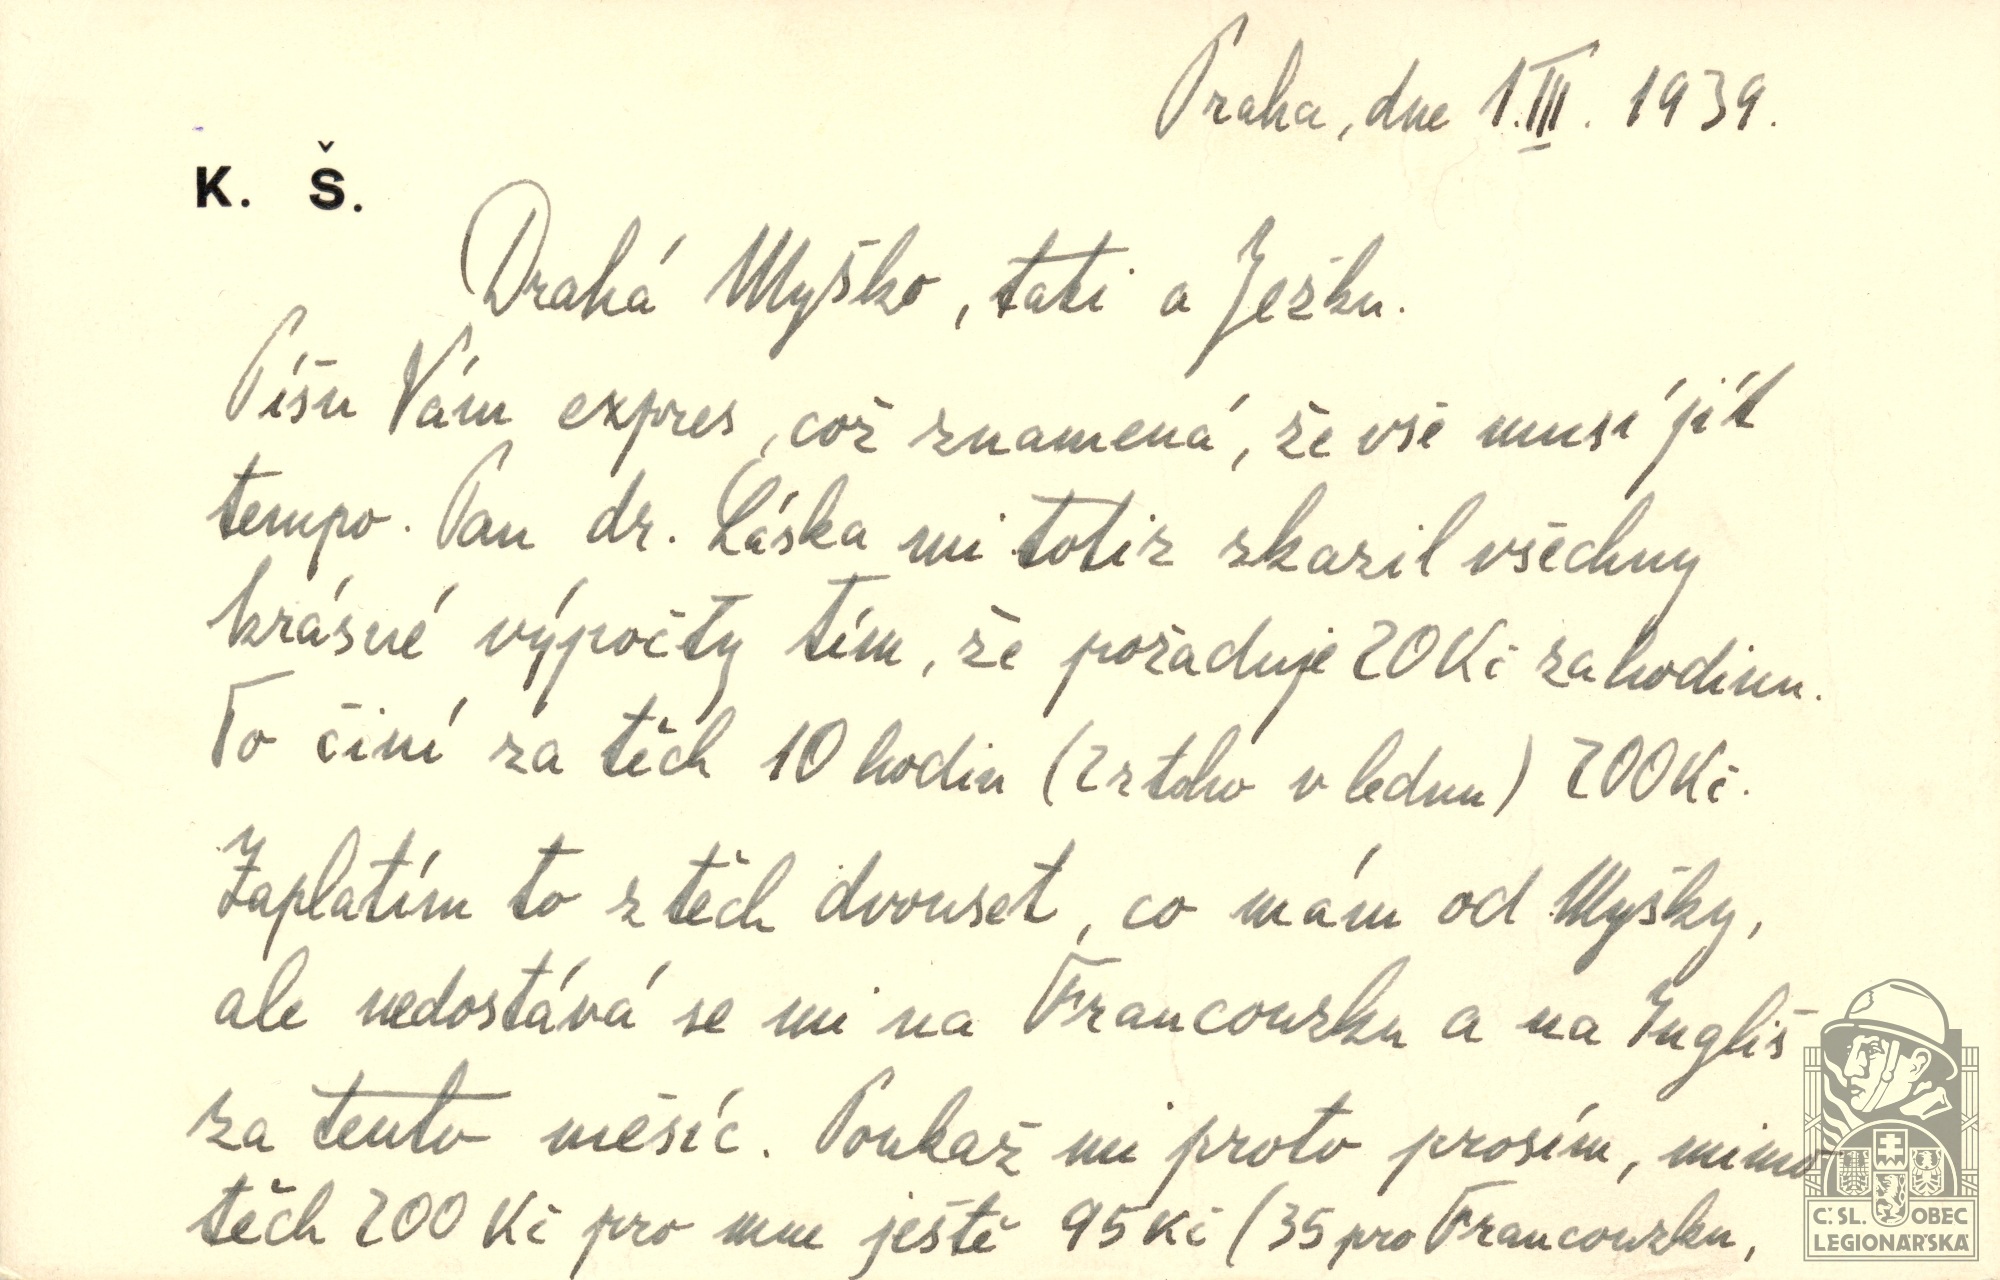 Praha, dne 1.III. 1939.
K. Š.
Drahá Myško, tati a Ježku.
Píšu Vám expres, což znamená, že vše musí jít
tempo. Pan dr. Láska mi totiz zkazil všechny
krásné výpočty tím, že požaduje 20 Kč za hodinu.
To činí za těch 10 hodin (2 z toho v lednu) 200 Kč.
Zaplatím to z těch dvouset, co mám od Myšky,
ale nedostává se mi na Francouzku a na Ingliš
za tento měsíc. Poukaž mi proto prosím, mimo
těch 200 Kč pro mne ještě 95 Kč (35 pro Francouzku,
Č.SL. OBEC
LEGIONÁŘSKÁ